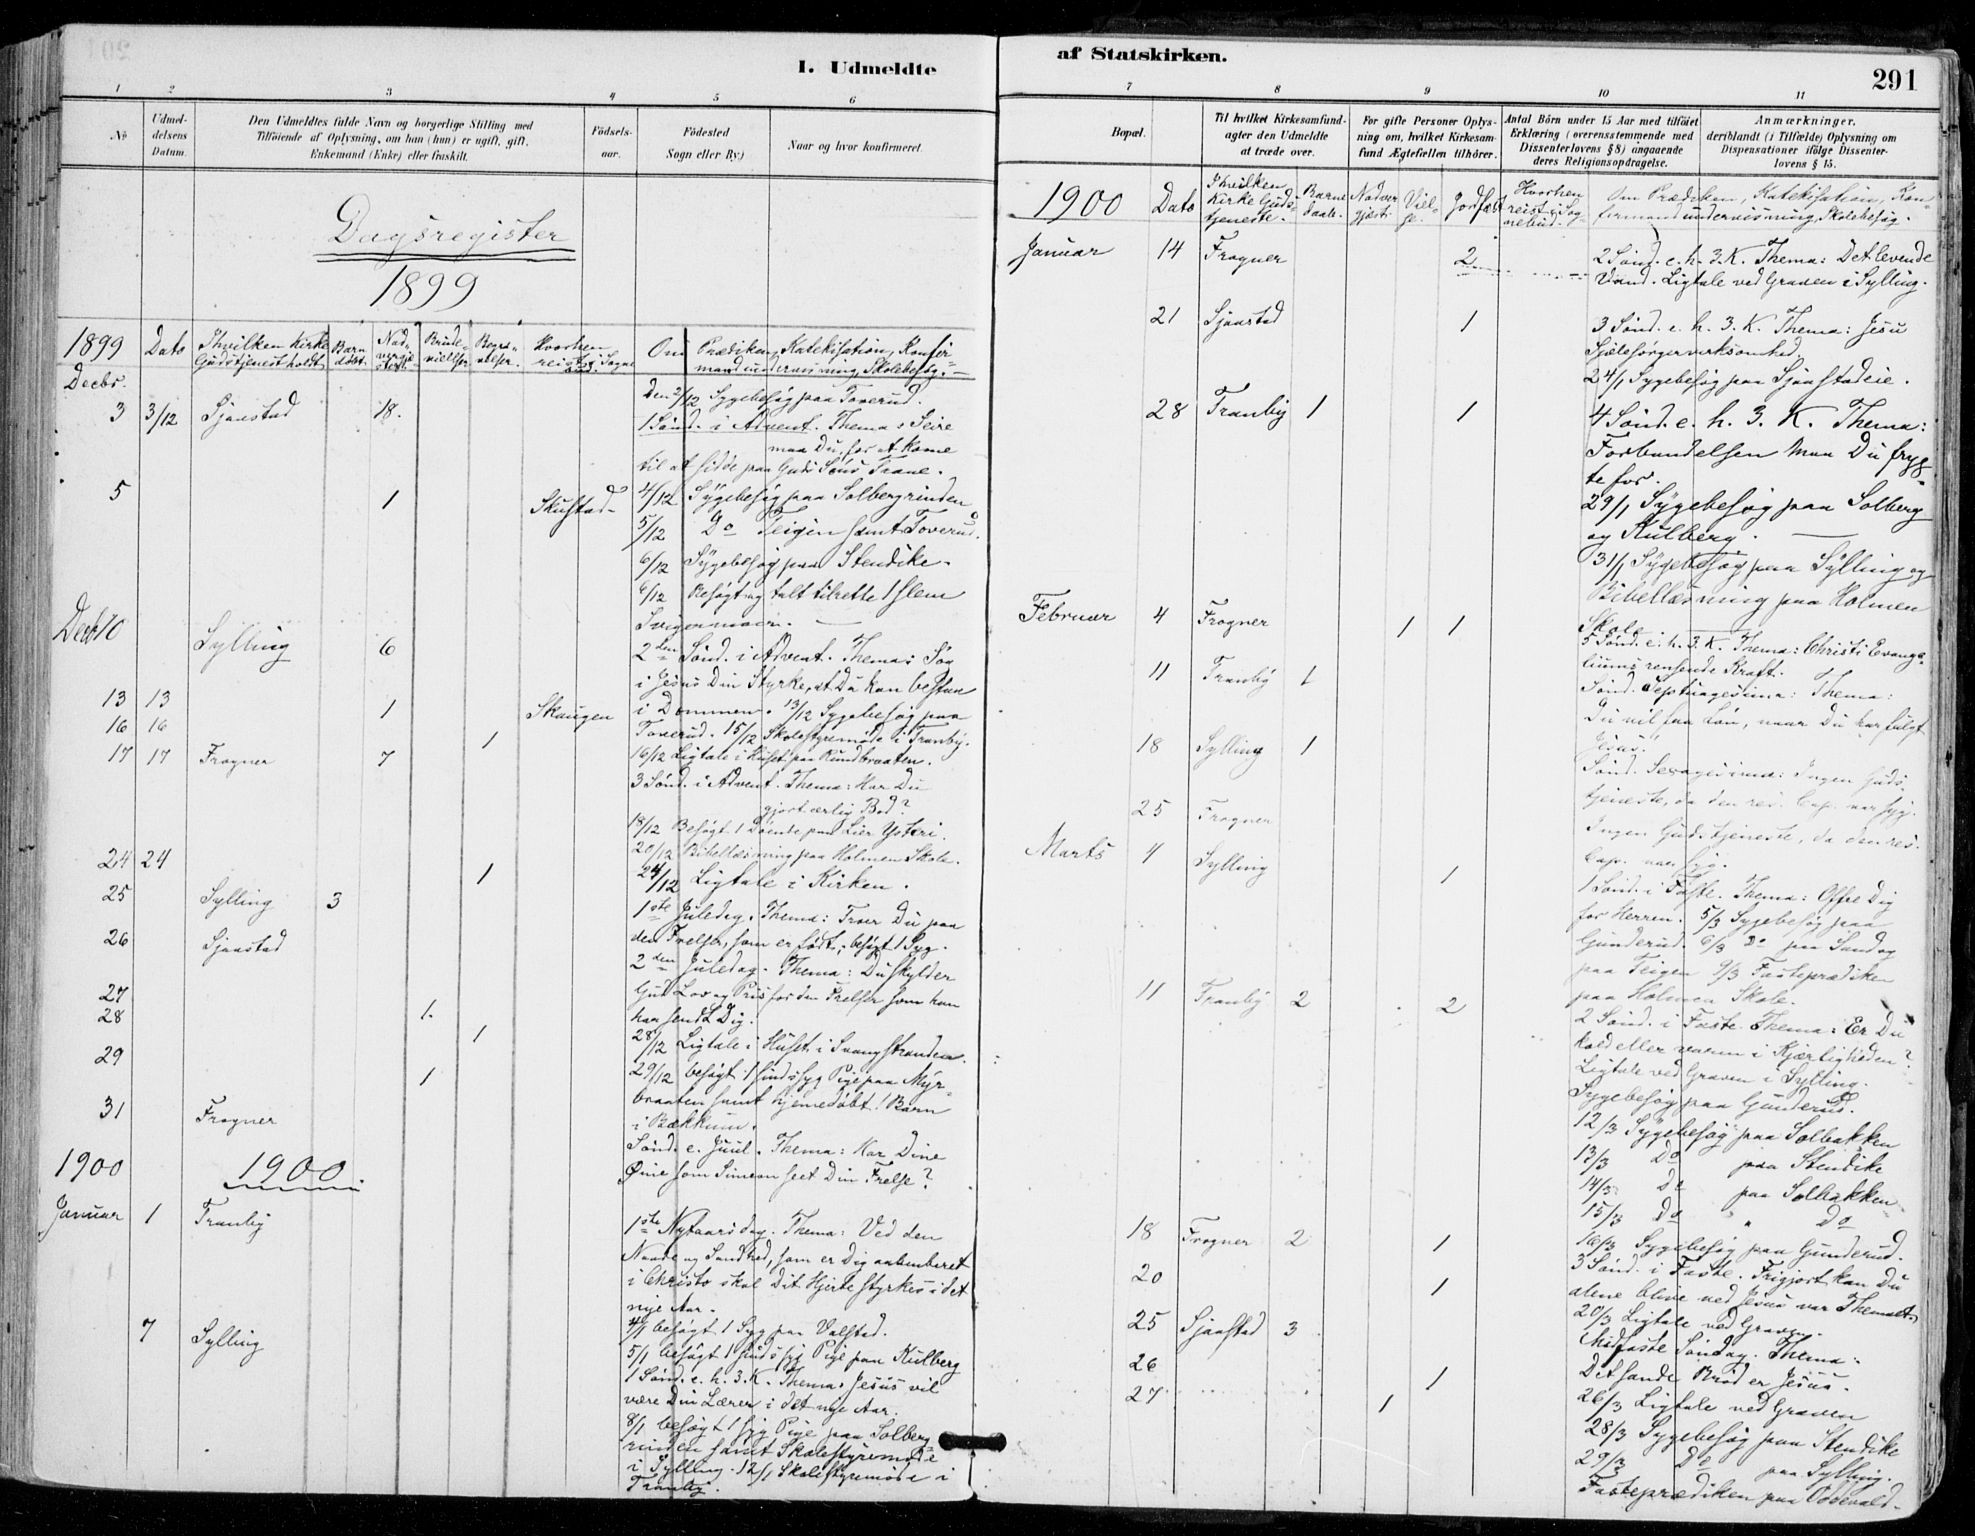 I. Udmeldte
1 2 3 4 5 6
No
Udmel-
delsens
Datum.
Den Udmeldtes fulde Navn og borgerlige Stilling med
Tilføiende af Oplysning, om han (hun) er ugift, gift,
Enkemand (Enke) eller fraskilt.
Fødsels-
aar.
Fødested
Sogn eller By.)
Naar og hvor konfirmeret.
Dagsregister
1899
1899 Dato Ihvilken Kirke
Gudstjenest holdt
Barn
døbt.
Nad-
verge-
Brude-
vielser
Hvorhen
reist i Sogne
Om Prædiken, Katekisation, Konfir-
mandundervisning, Skolebesøg.
Decbr.
Den 2/12 Sygebesøg paa Toverud.
3 3/12 Sjaastad 18. 1 Sønd. i Advent. Thema: Seire
maa Du, for at kome
til at sidde paa Guds Søns Trone.
5 1 Skustad 4/12 Sygebesøg paa Solbergrinden
5/12 Do Teigen samt Toverud.
6/12 Sygebesøg paa Stendike.
6/12 Besøgt og talt tilrette 1 slem
Svigermoer.
Decbr 10 Sylling 6 2den Sønd. i Advent. Thema: Søg
i Jesus Din Styrke, at Du kan bestaa
13 13 1 Skaugen i Dommen. 13/12 Sygebesøg paa
16 16 1 Toverud. 15/12 Skolestyremøde i Tranby.
17 17 Frogner 7 16/12 Ligtale i Huset paa Rundbraaten.
3 Sønd. i Advent. Thema: Har Du
gjort ærlig Bod?
18/12 Besøgt 1 Døende paa Lier Ysteri.
20/12 Bibellæsning paa Holmen Skole.
24 24 1 24/12 Ligtale i Kirken.
25 Sylling 3 1ste Juledag. Thema: Troer Du paa
den Frelser, som er født; besøgt 1 Syg.
26 Sjaastad 2den Juledag. Thema: Du skylder
27 1. Gud Lov og Pris for den Frelser som han
28 1 har sendt Dig.
28/12 Ligtale i Huset i Svangstranden.
29 1 29/12 besøgt 1 sindssyg Pige paa Myr-
braaten samt hjemedøbt 1 Barn
i Bækkum.
31 Frogner Sønd. e. Juul. Thema: Har Dine
Øine som Simeon seet Din Frelse?
1900 1900
Januar 1 Tranby 1ste Nytaarsdag. Thema: Ved den
Naade og Sandhed, som er Dig aabenbaret
i Christo skal Dit Hjerte styrkes i det
nye Aar.
4/1 besøgt 1 Syg paa Valstad.
7 Sylling 5/1 besøgt 1 sindssyg Pige paa Kulberg
1 Sønd. e. h. 3. K. Thema: Jesus vil
være Din Lærer i det nye Aar.
8/1 besøgt 1 syg Pige paa Solberg-
rinden samt Skolestyremøde
i Sylling. 12/1 Skolestyremøde i
Tranby.
af Statskirken.
291
7 8 9 10 11
Bopæl.
Til hvilket Kirkesamfund-
agter den Udmeldte
at træde over.
For gifte Personer Oplys-
ning om, hvilket Kirkesam-
fund Ægtefællen tilhører.
Antal Börn under 15 Aar med tilføiet
Erklæring (overensstemmende med
Dissenterlovens § 8) angaaende
deres Religionsopdragelse.
Anmærkninger,
deriblandt (i Tilfælde) Oplysning om
Dispensationer ifølge Dissenter-
lovens § 15.
1900 Dato Ihvilken
Kirke Guds-
tjeneste.
Barne
daab.
Nadver
gjæst
Viel-
se.
Jordfæst
Hvorhen
reist i Sog-
nebud.
Om Prædiken, Katekisation, Kon-
firmandundervisning, Skolebesøg.
Januar 14 Frogner 2 2 Sønd. e. h. 3. K. Thema: Det levende
Vand. Ligtale ved Graven i Sylling.
21 Sjaastad 1 3 Sønd. e. h. 3. K. Thema: Jesu
Sjælesørgervirksomhed.
24/1 Sygebesøg paa Sjaastadeie.
28 Tranby 1 1 4 Sønd. e. h. 3. K. Thema:
Forbandelsen maa Du fryg-
te for.
29/1 Sygebesøg paa Solberg
og Kulberg.
31/1 Sygebesøg paa Sylling og
Bibellæsning paa Holmen
Skole
Februar 4 Frogner 1 1 5 Sønd. e. h. 3. K. Thema: Christi Evange-
liums rensende Kraft.
11 Tranby 1 Sønd. Septuagesima: Thema:
Du vil faa Løn, naar Du har fulgt
Jesus.
18 Sylling 1 Sønd. Sexagesima: Ingen Guds-
tjeneste, da den res. Cap. var syg.
25 Frogner Ingen Gudstjeneste, da den res.
Cap. var syg.
Marts 4 Sylling 1 1 Sønd. i Faste. Thema: Offre Dig
for Herren. 5/3 Sygebesøg paa
Gunderud. 6/3 Do paa Sand og
paa Teigen 9/3 Fasteprædiken
paa Holmen Skole.
11 Tranby 2 2 2 Sønd. i Faste. Thema: Er Du
kold eller varm i Kjærligheden?
Ligtale ved Graven i Sylling.
Sygebesøg paa Gunderud.
12/3 Sygebesøg paa Solbakken
13/3 Do paa Stendike
14/3 Do paa Solbakken
15/3 Do " Do
16/3 Sygebesøg paa Gunderud.
18 Frogner 2 1 3 Sønd. i Faste. Frigjort kan Du
alene blive ved Jesus var Themaet.
20 1 20/3 Ligtale ved Graven.
25 Sjaastad 3 Midfaste Søndag. Thema:
Det sande Brød er Jesus.
26 1 26/3 Ligtale ved Graven
27 1 28/3 Sygebesøg paa Stendike
29/3 Do paa Sylling.
Fasteprædiken paa